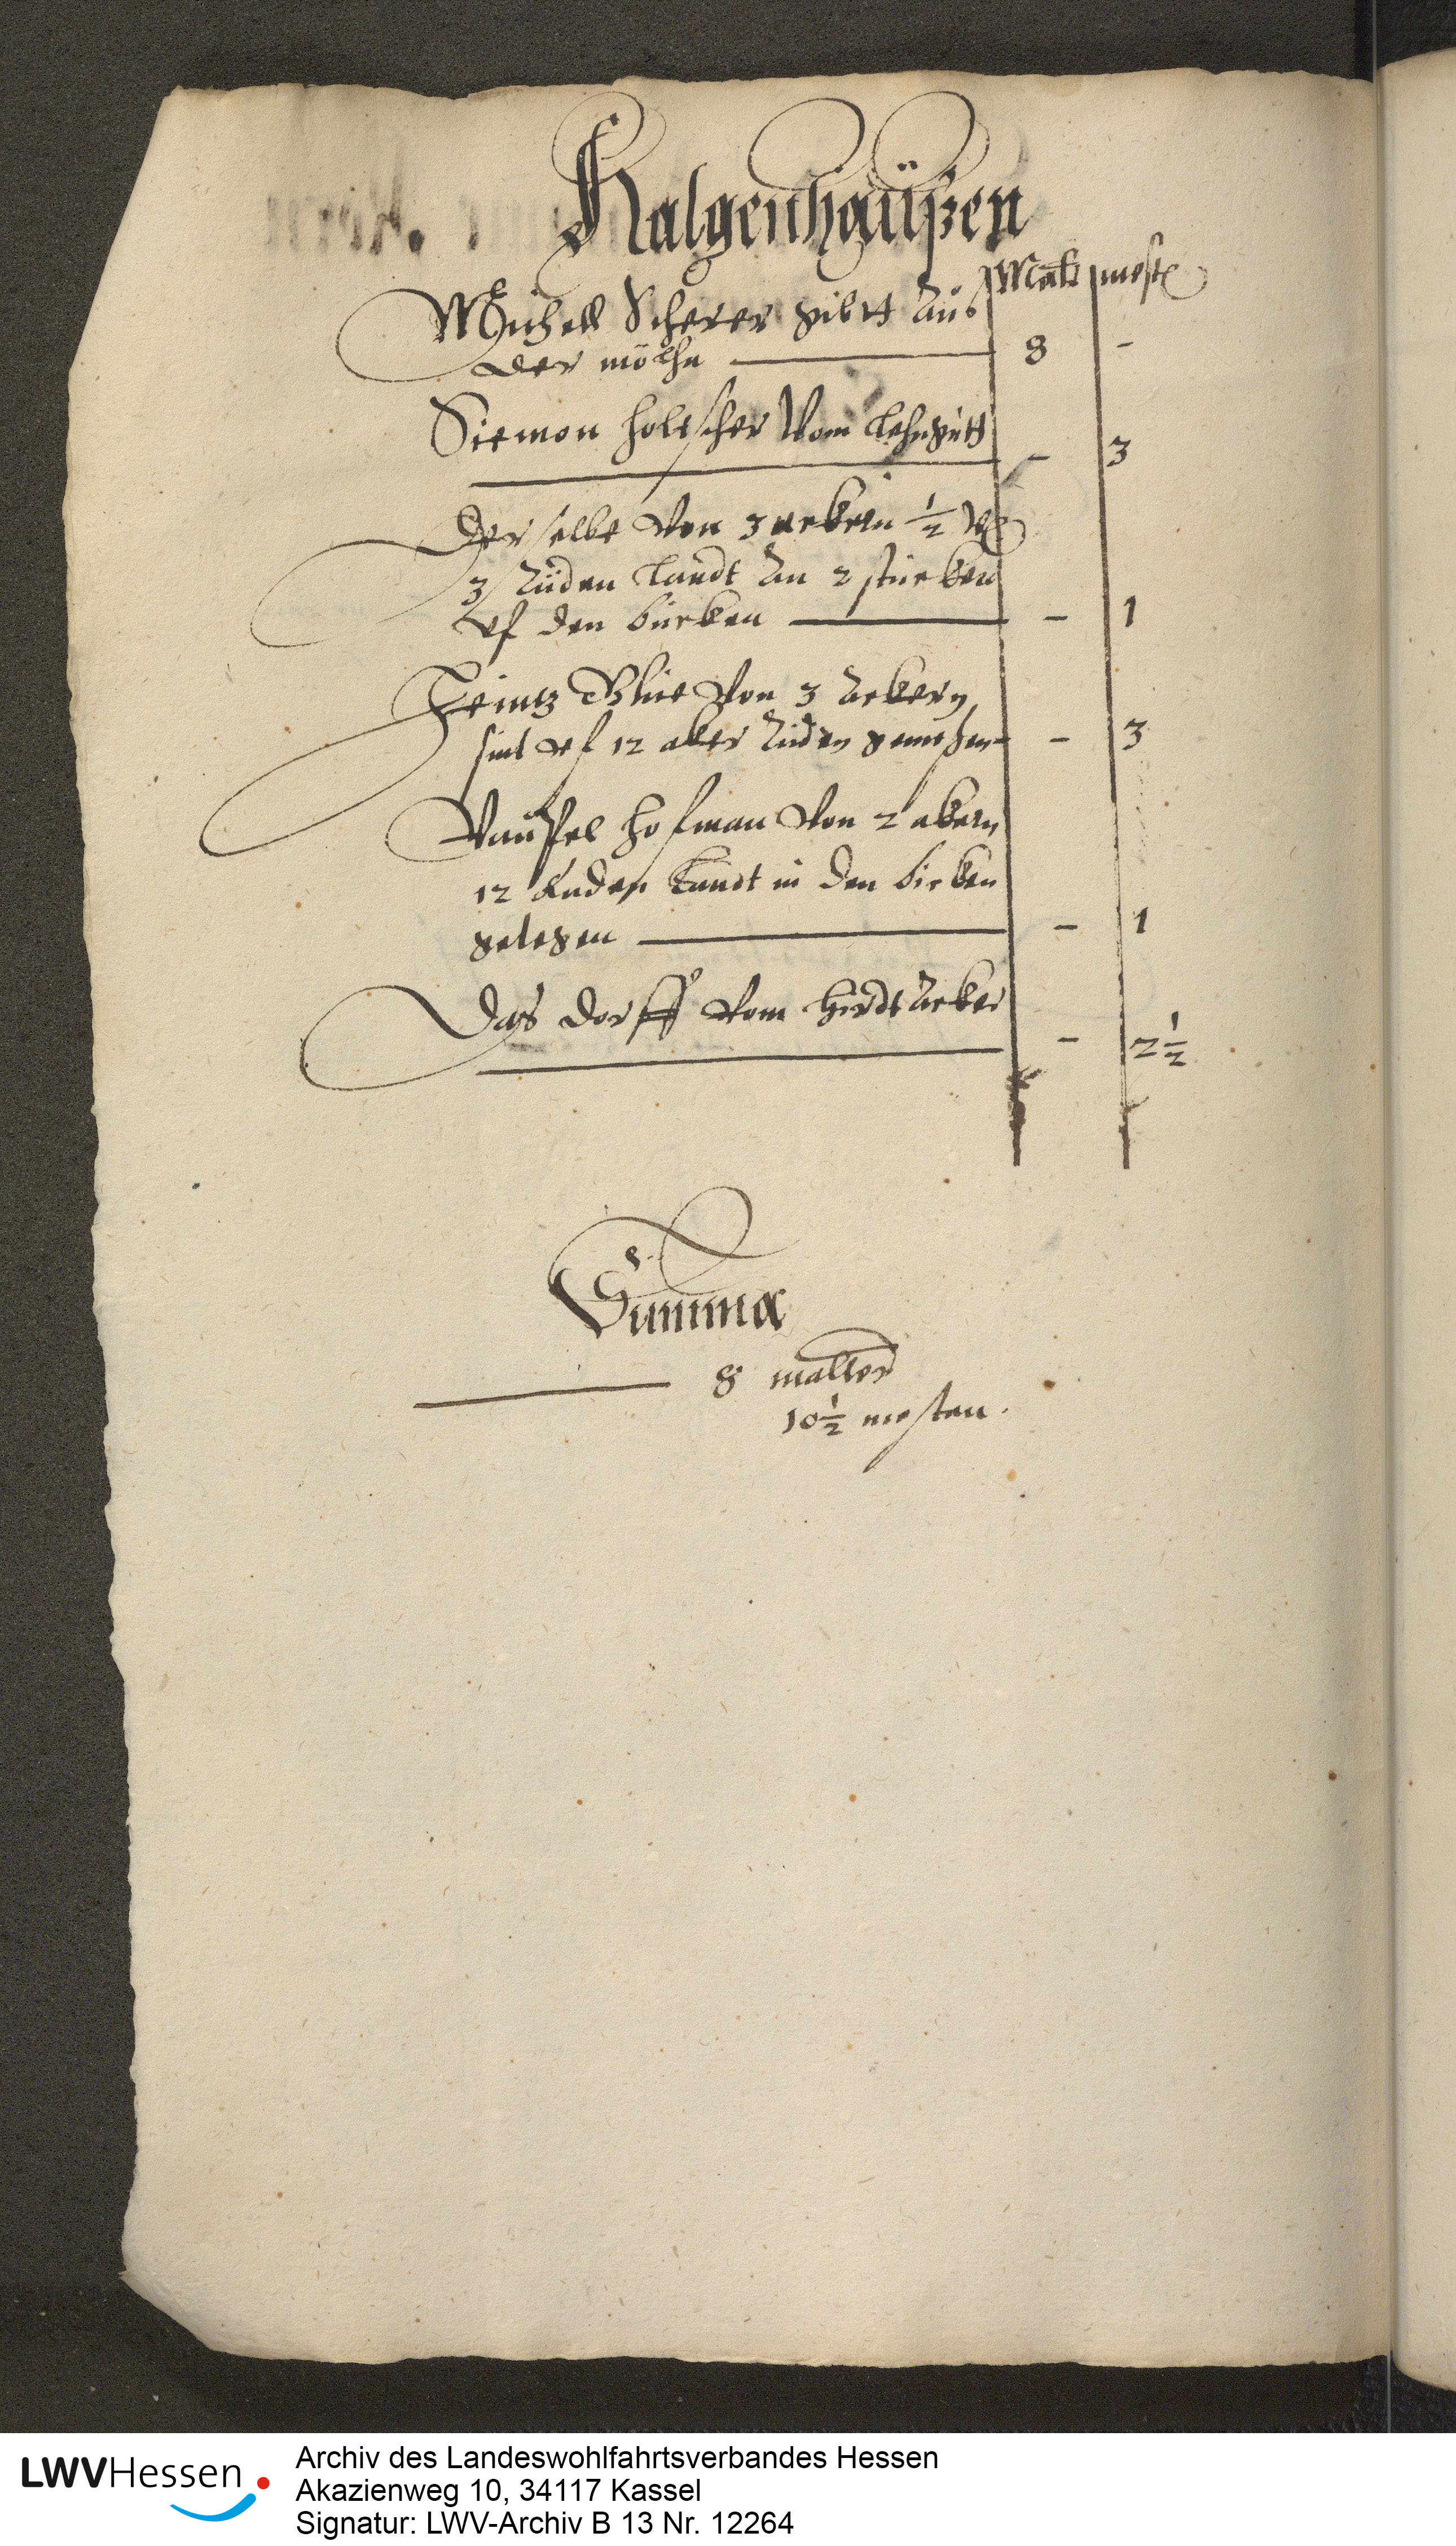 Halgenhaüßen
Malt mest
Michell Scherer gibtt Aus
der mölln 8 -
Siemon Holtscher Vom Lehngutt
- 3
Derselbe Von 3 ackern ½
3 Ruden Landt An 2 stucken
uf den bircken - 1
Heintz Von 3 Ackern
sint uf 12 aker Ruden gemeßen - 3
Hofman Von 2 akern
12 Ruden Landt in den bircken
gelegen - 1
Das dorff Vom Hirdt Acker
- 2½
Summa
8 malter
10½ mesten.
LWVHessen
Archiv des Landeswohlfahrtsverbandes Hessen
Akazienweg 10, 34117 Kassel
Signatur: LWV-Archiv B 13 Nr. 12264